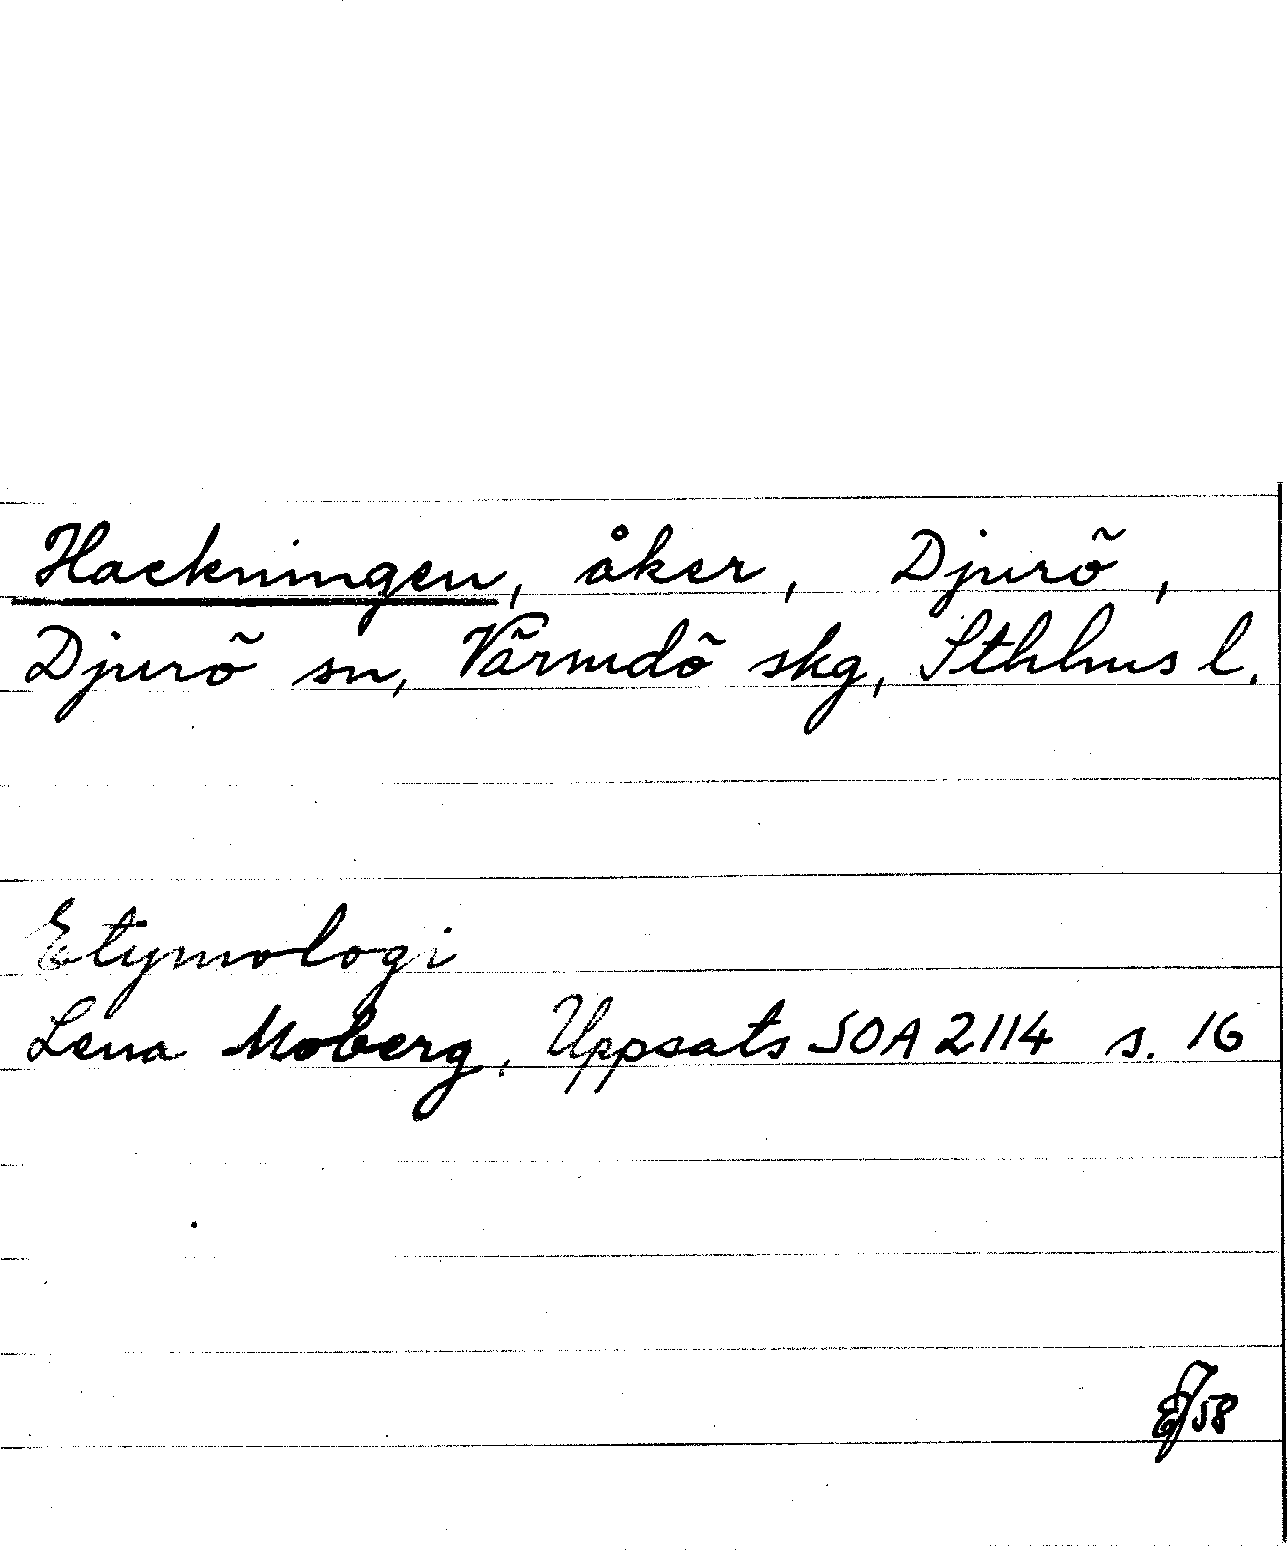 Hackningen, åker, Djurö,
Djurö sn, Värmdö skg, Sthlms l.
Etymologi
Lena Moberg, Uppsats SOA 2114 s. 16
/58